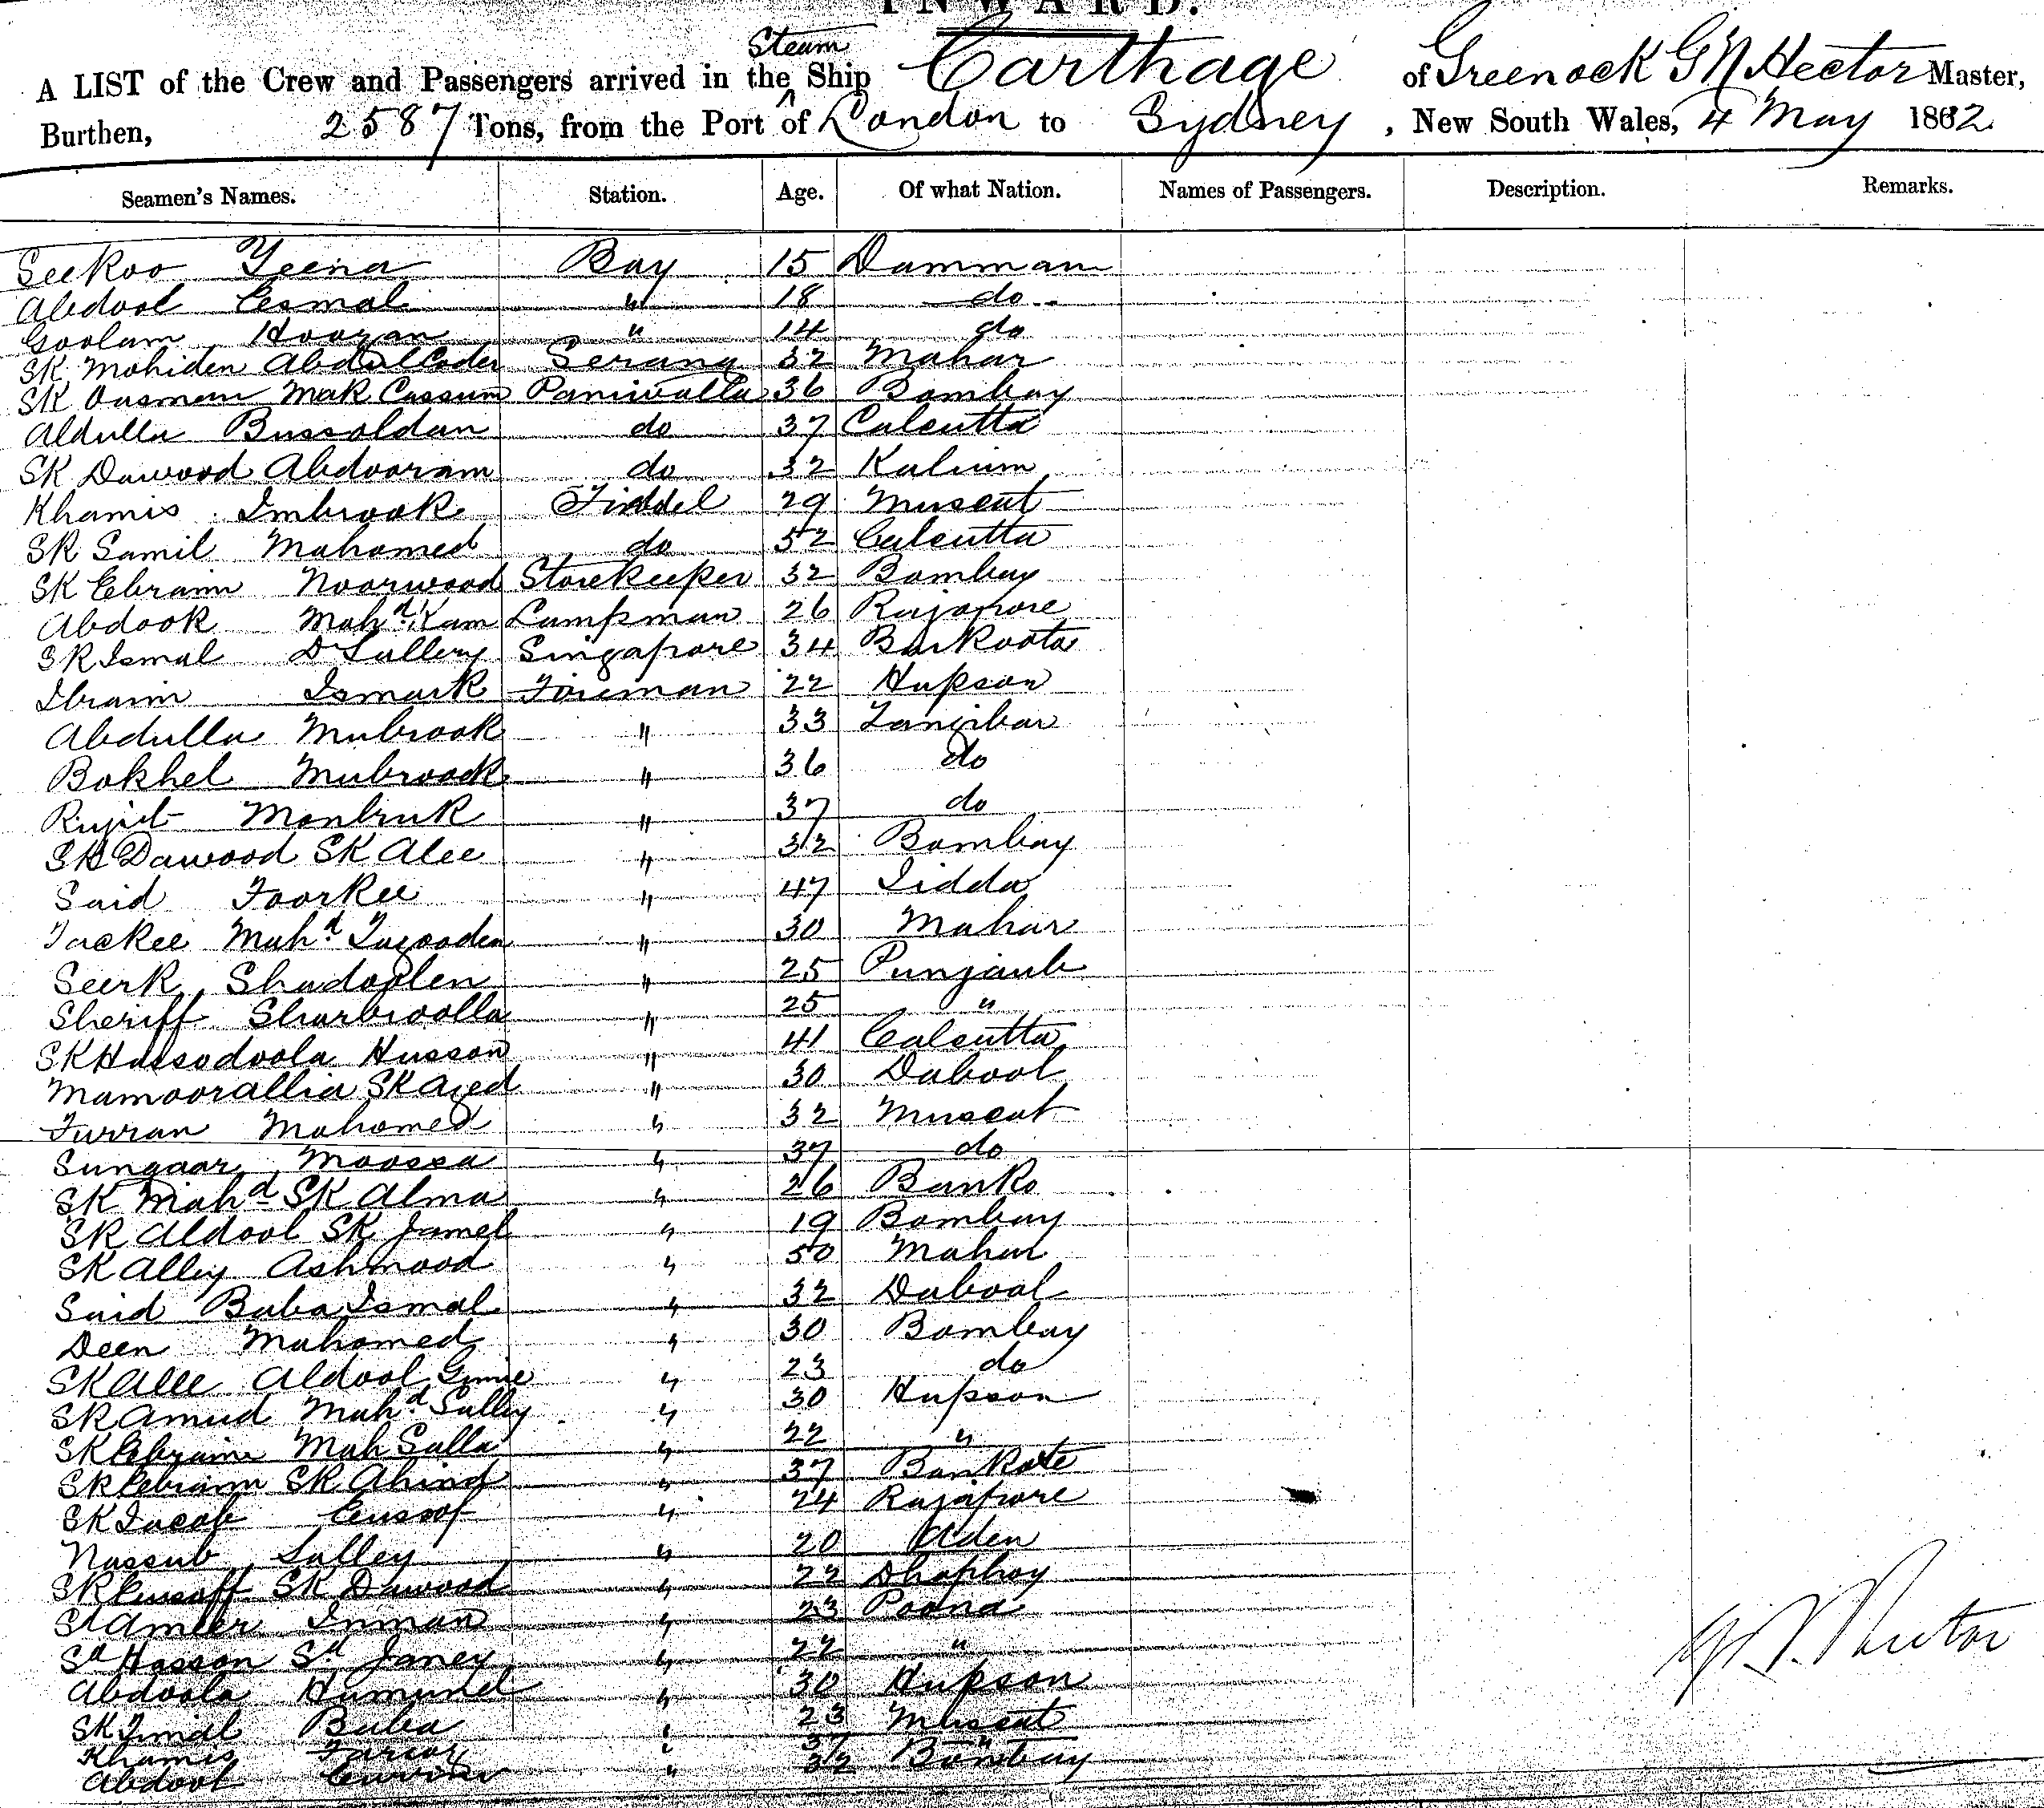 INWARD.
A LIST of the Crew and Passengers arrived in the Steam Ship Carthage of Greenock G N Hector Master,
Burthen, 2587 Tons, from the Port of London to Sydney, New South Wales, 4 May 1882
Seamen's Names. Station. Age. Of what Nation. Names of Passengers. Description. Remarks.
Seekoo Yeena Boy 15 Dumman
Abdool Eesmal " 18 do
Goolam Hoozan " 14 do
SK Mohiden Abdul Cader Serang 32 Mahar
SK Ousman Mak Cassum Paniwalla 36 Bombay
Aldulla Bussoldan do 37 Calcutta
SK Dawood Abdooram do 32 Kulium
Khamis Imbrook Tindel 29 Muscat
SK Samil Mahomed do 52 Calcutta
SK Ebraim Noorwood Storekeeper 32 Bombay
Abdook Mahd Kam Lampman 26 Rajapore
SK Ismal D Sallery Singapore 34 Bankoota
Ibraim Ismark Fireman 22 Hupson
Abdulla Mubrook " 33 Zanzibar
Bokhel Mubrook " 36 do
Rujit Monbruk " 37 do
SK Dawood SK Alee " 32 Bombay
Said Foorkee " 47 Jidda
Jackee Mahd Tajooden " 30 Mahar
Seerk Shadoolen " 25 Punjaub
Sheriff Shurbwolla " 25 "
SK Hassodoola Husson " 41 Calcutta
Mamoorallia SK Ajed " 30 Dabool
Furran Mahomed " 32 Muscat
Sungaar Moossa " 37 do
SK Mahd SK Alma " 26 Banko
SK Aldool SK Jamel " 19 Bombay
SK Alley Ashmood " 50 Mahar
Said Buba Ismal " 32 Dabool
Deen Mahomed " 30 Bombay
SK Alee Aldool Gunie " 23 do
SK Amud Mahd Salley " 30 Hupson
SK Ebraim Mah Salla " 22 "
SK Ebraim SK Ahind " 37 Bankote
SK Jacob Eussof " 24 Rajapore
Nassub Salley " 20 Aden
SK Eusoff SK Dawood " 22 Dhophoy
Inman " 23 Poona
Hasson Janey " 22 "
Abdoola Humund " 30 Hupson
SK Ismal Buba " 23 Muscat
Khamis " 37 "
Abdool " 32 Bombay